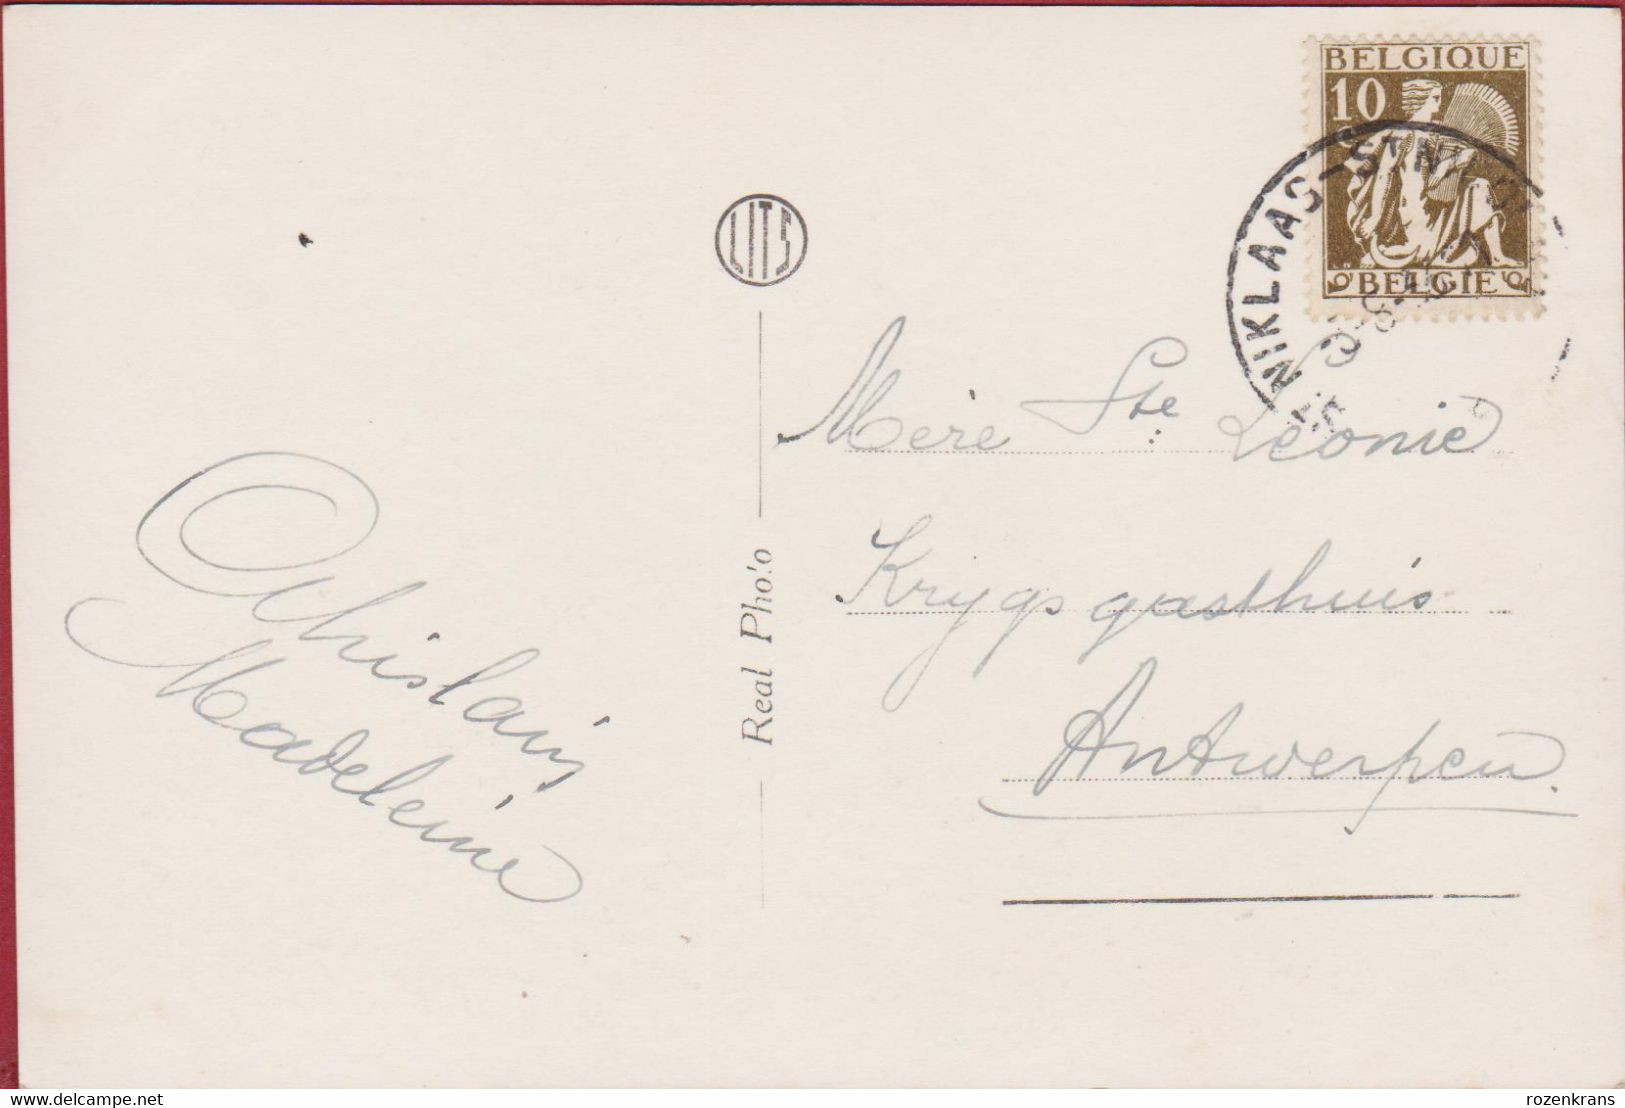 BELGIQUE
10
BELGIE
NIKLAAS-ST NI
LITS
Real Photo
Mère Ste Léonie
Krygsgasthuis
Antwerpen.
Ghislain
Madeleine
www.delcampe.net
rozenkrans